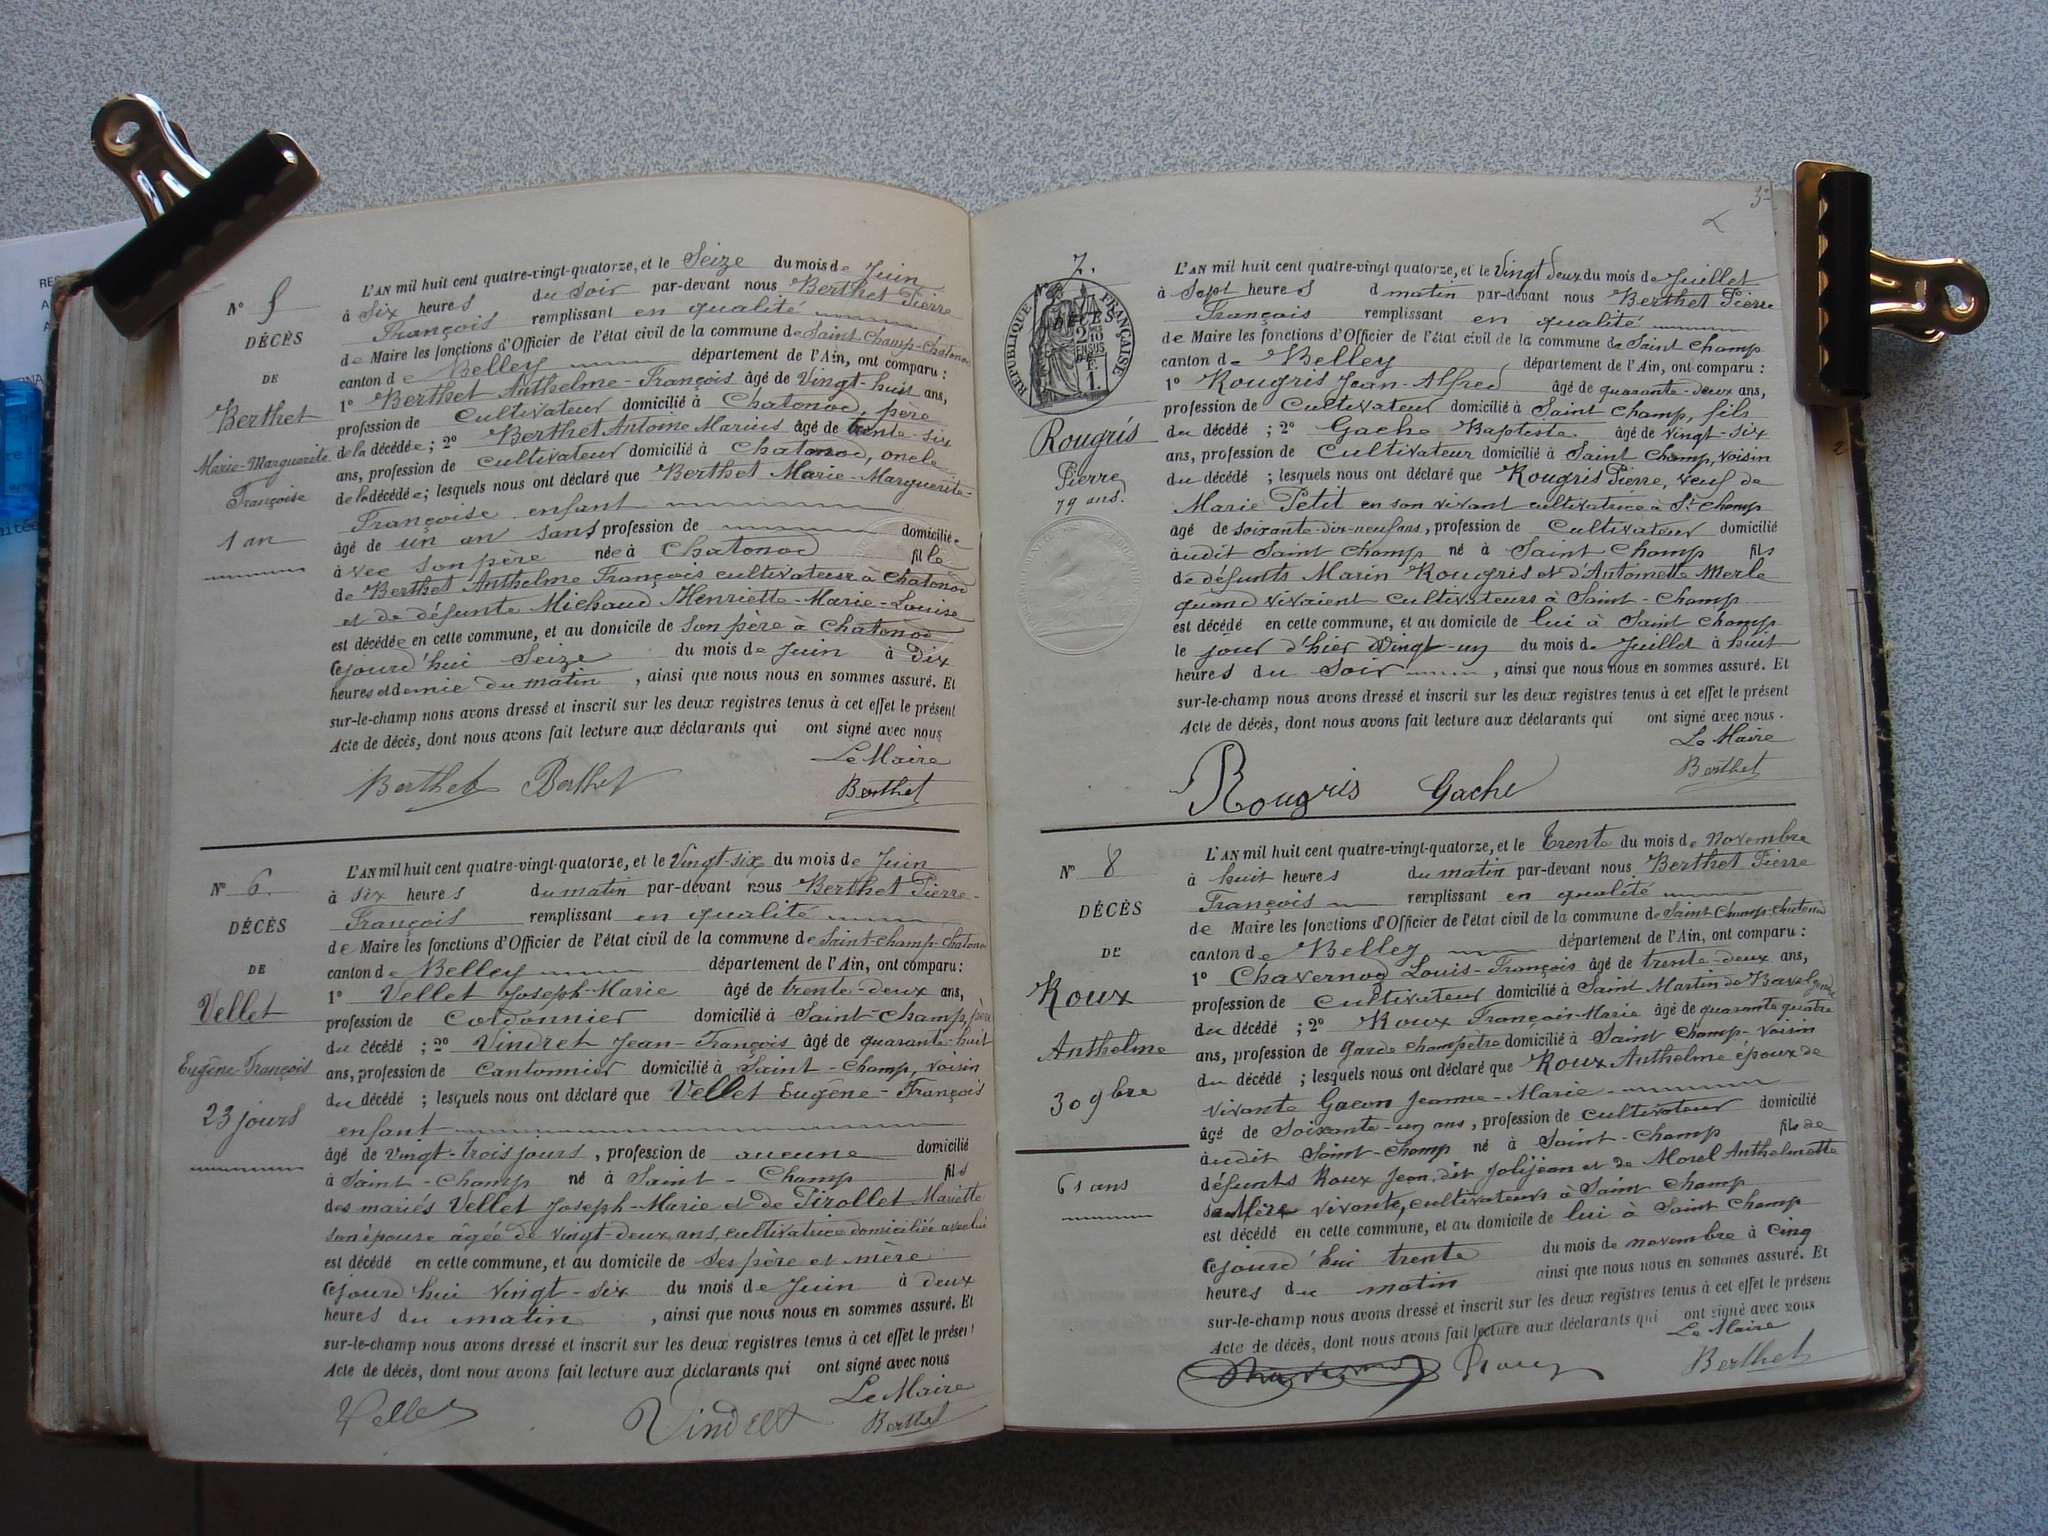 N° 5
DÉCÈS
DE
Berthet
Marie-Marguerite
Françoise
1 an
L'AN mil huit cent quatre-vingt-quatorze, et le Seize du mois de Juin
à Six heures du Soir par-devant nous Berthet Pierre
François remplissant en qualité
de Maire les fonctions d'Officier de l'état civil de la commune de Saint-Champ-Chatonod
canton de Belley département de l'Ain, ont comparu :
1° Berthet Anthelme-François âgé de Vingt-huit ans,
profession de Cultivateur domicilié à Chatonod, père
de la décédée ; 2° Berthet Antoine Marius âgé de trente-six
ans, profession de cultivateur domicilié à Chatonod, oncle
de la décédée ; lesquels nous ont déclaré que Berthet Marie-Marguerite-
Françoise enfant
âgé de un an sans profession de domiciliée
avec son père née à Chatonod fille
de Berthet Anthelme François cultivateur à Chatonod
et de défunte Michaud Henriette-Marie-Louise
est décédée en cette commune, et au domicile de son père à Chatonod
cejourd'hui Seize du mois de Juin à Dix
heures et demie du matin, ainsi que nous nous en sommes assuré. Et
sur-le-champ nous avons dressé et inscrit sur les deux registres tenus à cet effet le présent
Acte de décès, dont nous avons fait lecture aux déclarants qui ont signé avec nous
Le Maire
Berthet Berthet Berthet
N° 6.
DÉCÈS
DE
Vellet
Eugène-François
23 jours
L'AN mil huit cent quatre-vingt-quatorze, et le Vingt-six du mois de Juin
à six heures du matin par-devant nous Berthet Pierre-
François remplissant en qualité
de Maire les fonctions d'Officier de l'état civil de la commune de Saint-Champ-Chatonod
canton de Belley département de l'Ain, ont comparu :
1° Vellet Joseph-Marie âgé de trente-deux ans,
profession de Cordonnier domicilié à Saint-Champ, père
du décédé ; 2° Vindret Jean-François âgé de quarante-huit
ans, profession de Cantonnier domicilié à Saint-Champ, voisin
du décédé ; lesquels nous ont déclaré que Vellet Eugène-François
enfant
âgé de vingt-trois jours, profession de aucune domicilié
à Saint-Champ né à Saint-Champ fils
des mariés Vellet Joseph-Marie et de Pirollet Mariette
son épouse âgée de vingt-deux ans, cultivatrice domiciliée avec lui
est décédé en cette commune, et au domicile de ses père et mère
cejourd'hui vingt-six du mois de Juin à deux
heures du matin, ainsi que nous nous en sommes assuré. Et
sur-le-champ nous avons dressé et inscrit sur les deux registres tenus à cet effet le présent
Acte de décès, dont nous avons fait lecture aux déclarants qui ont signé avec nous
Le Maire
Vellet Vindret Berthet
7.
N°
RÉPUBLIQUE FRANÇAISE
DÉCÈS
2/10 EN SUS
1 F.
Rougris
Pierre
79 ans.
L'AN mil huit cent quatre-vingt quatorze, et le Vingt deux du mois de Juillet
à Sept heures du matin par-devant nous Berthet Pierre
François remplissant en qualité
de Maire les fonctions d'Officier de l'état civil de la commune de Saint Champ
canton de Belley, département de l'Ain, ont comparu :
1° Rougris Jean-Alfred âgé de quarante-deux ans,
profession de Cultivateur domicilié à Saint Champ, fils
du décédé ; 2° Gache Baptiste âgé de vingt-six
ans, profession de Cultivateur domicilié à Saint Champ, voisin
du décédé ; lesquels nous ont déclaré que Rougris Pierre, veuf de
Marie Petit en son vivant cultivatrice à St Champ
âgé de soixante-dix-neuf ans, profession de Cultivateur domicilié
audit Saint Champ né à Saint Champ fils
de défunts Marin Rougris et d'Antoinette Merle
quand vivaient cultivateurs à Saint-Champ
est décédé en cette commune, et au domicile de lui à Saint Champ
le jour d'hier Vingt-un du mois de Juillet à huit
heures du Soir, ainsi que nous nous en sommes assuré. Et
sur-le-champ nous avons dressé et inscrit sur les deux registres tenus à cet effet le présent
Acte de décès, dont nous avons fait lecture aux déclarants qui ont signé avec nous.
Le Maire
Rougris Gache Berthet
N° 8
DÉCÈS
DE
Roux
Anthelme
30 9bre
61 ans
L'AN mil huit cent quatre-vingt-quatorze, et le Trente du mois de Novembre
à huit heures du matin par-devant nous Berthet Pierre
François remplissant en qualité
de Maire les fonctions d'Officier de l'état civil de la commune de Saint Champ-Chatonod
canton de Belley département de l'Ain, ont comparu :
1° Chavernod Louis-François âgé de trente-deux ans,
profession de Cultivateur domicilié à Saint Martin de Bavel, gendre
du décédé ; 2° Roux François-Marie âgé de quarante quatre
ans, profession de garde champêtre domicilié à Saint Champ-voisin
du décédé ; lesquels nous ont déclaré que Roux Anthelme époux de
vivante Gacon Jeanne-Marie
âgé de Soixante-un ans, profession de cultivateur domicilié
audit Saint-Champ né à Saint-Champ fils de
défunts Roux Jean, dit Jolijean et de Morel Anthelmette
sa Mère vivante, cultivateurs à Saint Champ
est décédé en cette commune, et au domicile de lui à Saint Champ
cejourd'hui trente du mois de novembre à cinq
heures du matin ainsi que nous nous en sommes assuré. Et
sur-le-champ nous avons dressé et inscrit sur les deux registres tenus à cet effet le présent
Acte de décès, dont nous avons fait lecture aux déclarants qui ont signé avec nous
Le Maire
Chavernod Roux Berthet